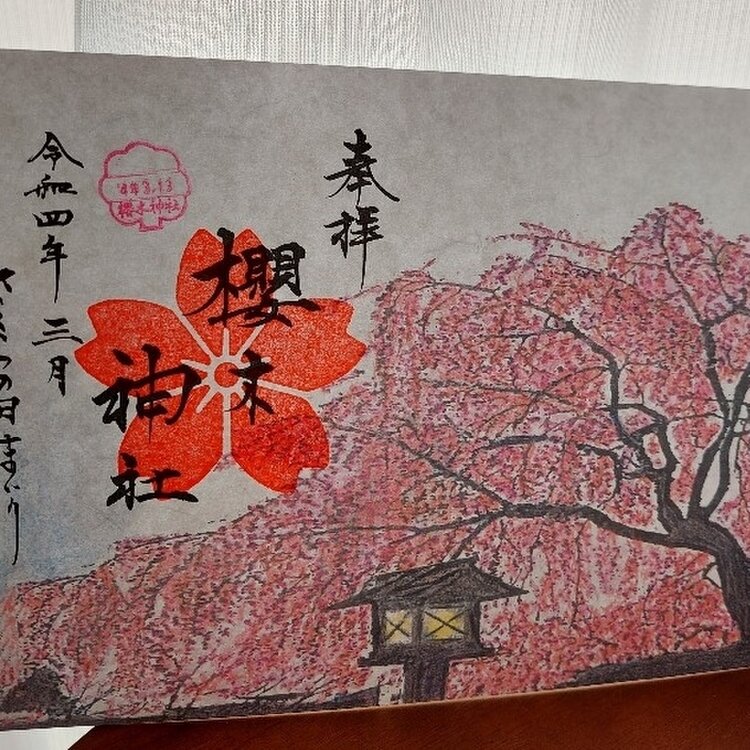 奉拝
櫻木
神社
'4年3.13
櫻木神社
令和四年三月
さくらの日まいり